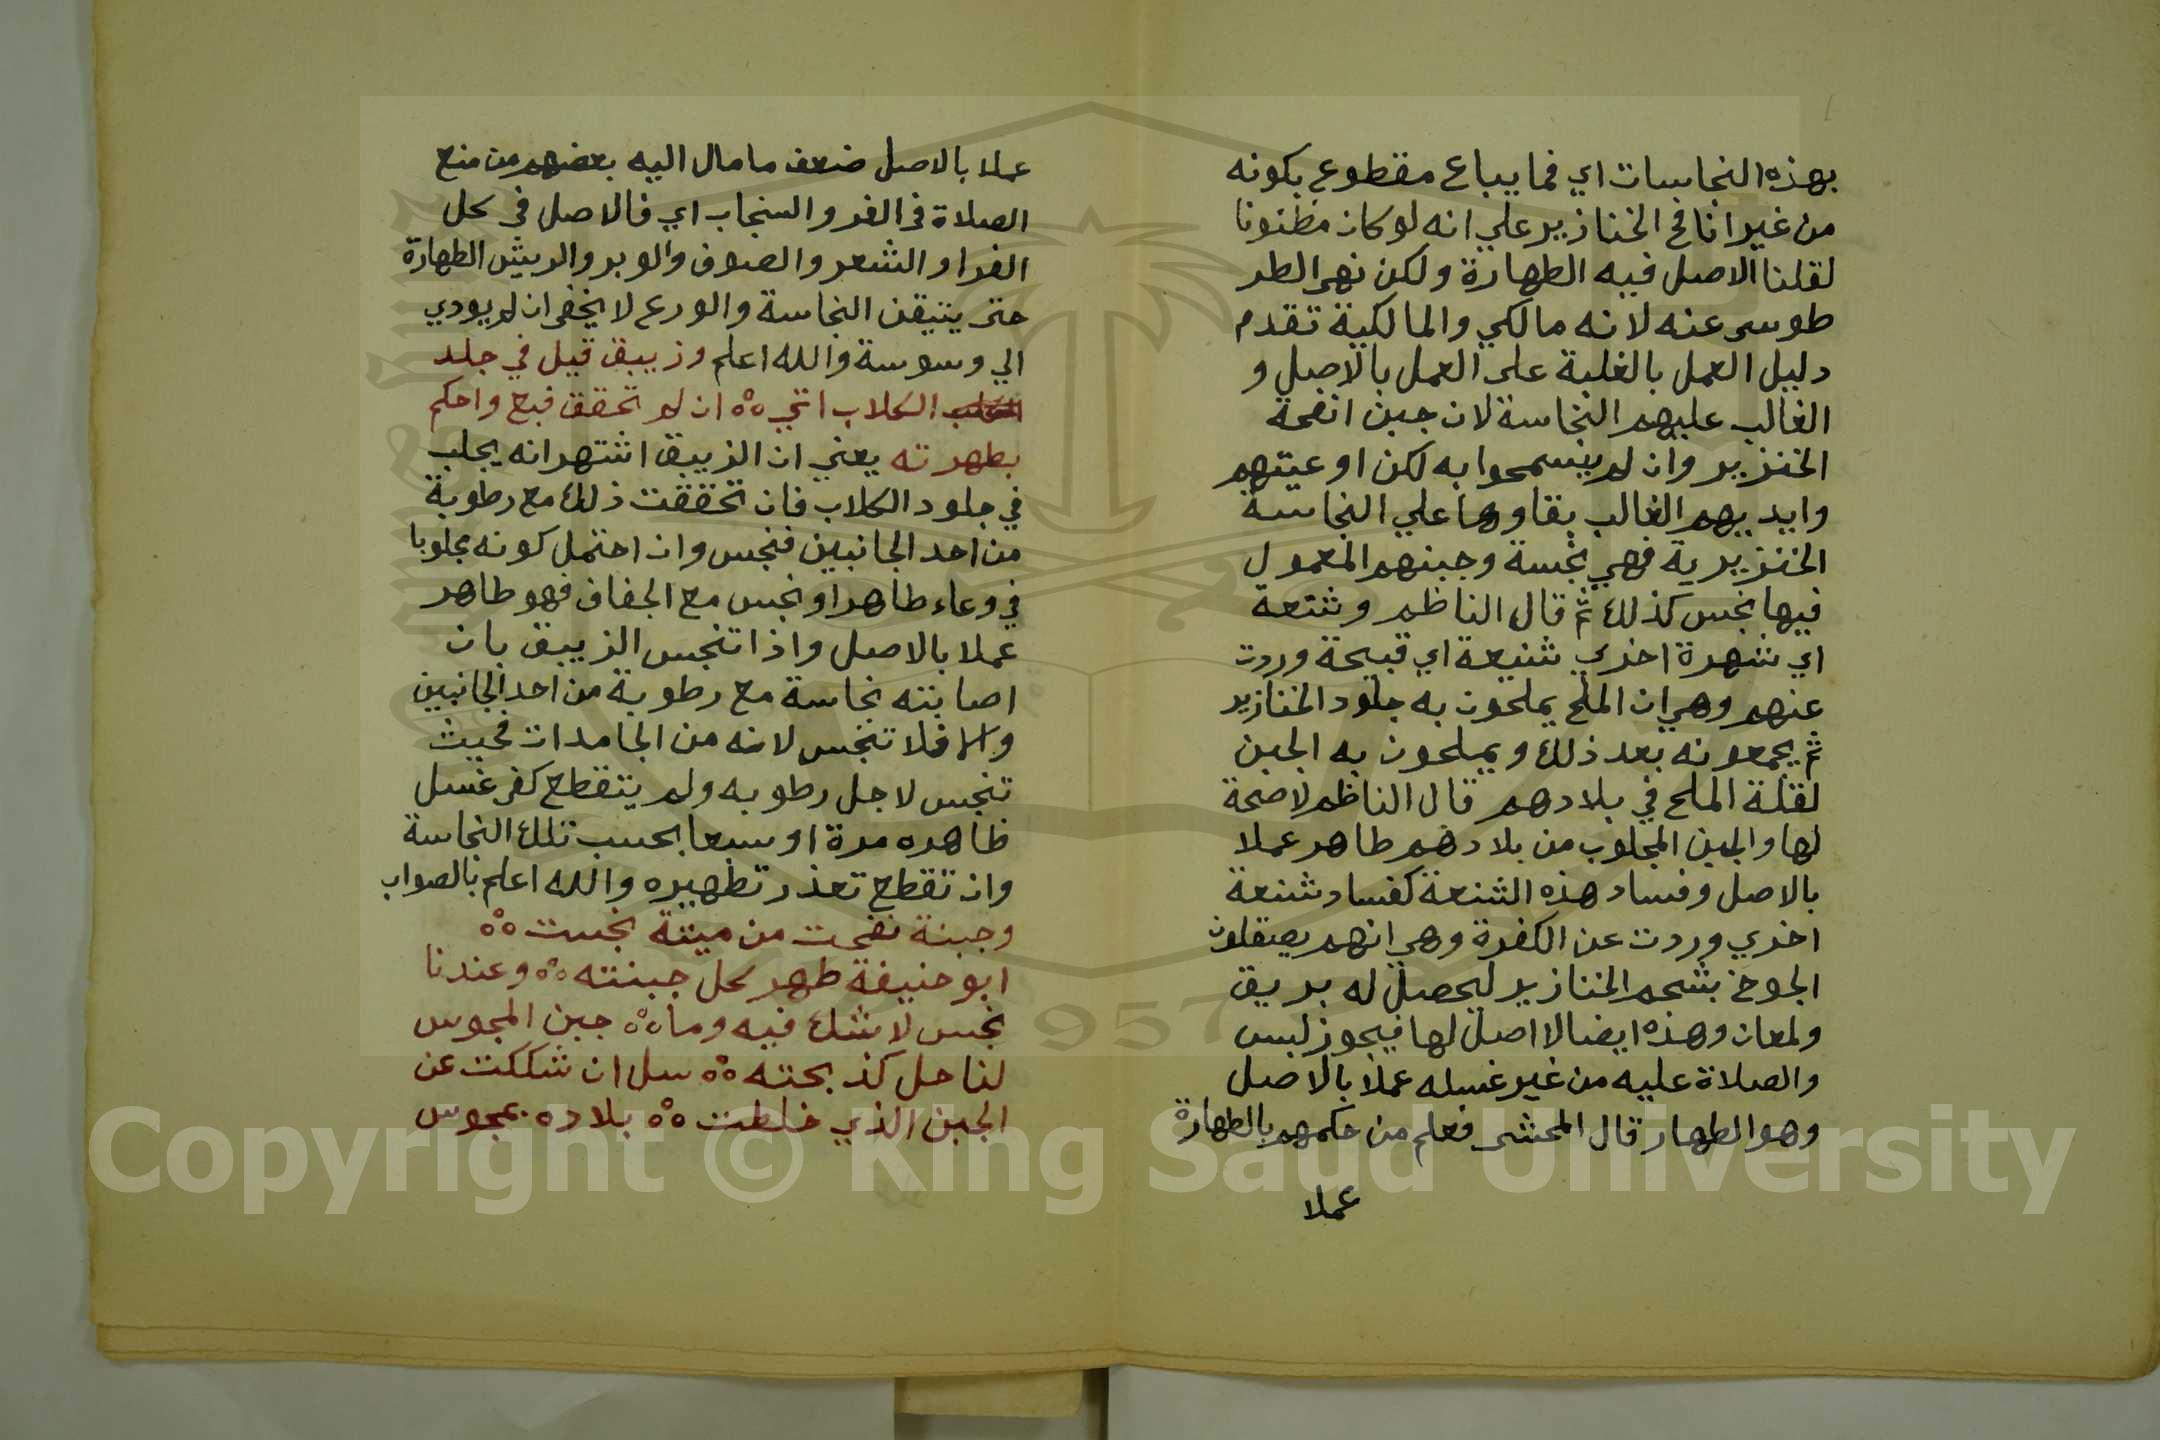 بهذه النجاسات اي فما يباع مقطوع بكونه
من غير انافح الخنازير علي انه لو كان مظنونا
لقلنا الاصل فيه الطهارة ولكن نهى الطر
طوسى عنه لانه مالكي والمالكية تقدم
دليل العمل بالغلبة على العمل بالاصل و
الغالب عليهم النجاسة لان جبن انفحة
الخنزير وان لم يسمحوا به لكن اوعيتهم
وايديهم الغالب بقاوها علي النجاسة
الخنزيرية فهي نجسة وجبنهم المعمول
فيها نجس كذلك ثم قال الناظم وشنعة
اي شهرة اخري شنيعة اي قبيحة وردت
عنهم وهي ان الملح يملحون به جلود الخنازير
ثم يجمعونه بعد ذلك ويملحون به الجبن
لقلة الملح في بلادهم قال الناظم لا صحة
لها والجبن المجلوب من بلادهم طاهر عملا
بالاصل وفساد هذه الشنعة كفساد شنعة
اخري وردت عن الكفرة وهي انهم يصقلون
الجوخ بشحم الخنازير ليحصل له بريق
ولمعان وهذه ايضا لا اصل لها فيجوز لبس
والصلاة عليه من غير غسله عملا بالاصل
وهو الطهار قال المحشى فعلم من حكمهم بالطهارة
عملا
عملا بالاصل ضعف ما مال اليه بعضهم من منع
الصلاة في الفرو السنجاب اي فالاصل في كل
الفراو الشعر والصوف والوبر والريش الطهارة
حتى يتيقن النجاسة والورع لا يخفى ان لم يودي
الي وسوسة والله اعلم وزيبق قيل في جلد
الكلاب اتي ۰۰ ان لم تحقق فبع واحكم
بطهرته يعني ان الزيبق اشتهر انه يجلب
في جلود الكلاب فان تحققت ذلك مع رطوبة
من احد الجانبين فنجس وان احتمل كونه مجلوبا
في وعاء طاهر او نجس مع الجفاف فهو طاهر
عملا بالاصل واذا تنجس الزيبق بان
اصابته نجاسة مع رطوبة من احد الجانبين
والا فلا تنجس لانه من الجامدات فحيث
تنجس لاجل رطوبه ولم يتقطع كفى غسل
ظاهره مرة او سبعا بحسب تلك النجاسة
وان تقطع تعذر تطهيره والله اعلم بالصواب
وجبنة نفحت من ميتة نجست ۰۰
ابو حنيفة طهر كل جبنته ۰۰ وعندنا
نجس لا شك فيه وما ۰۰ جبن المجوس
لنا حل كذبحته ۰۰ سل ان شككت عن
الجبن الذي خلطت ۰۰ بلاده بمجوس
Copyright © King Saud University
1957